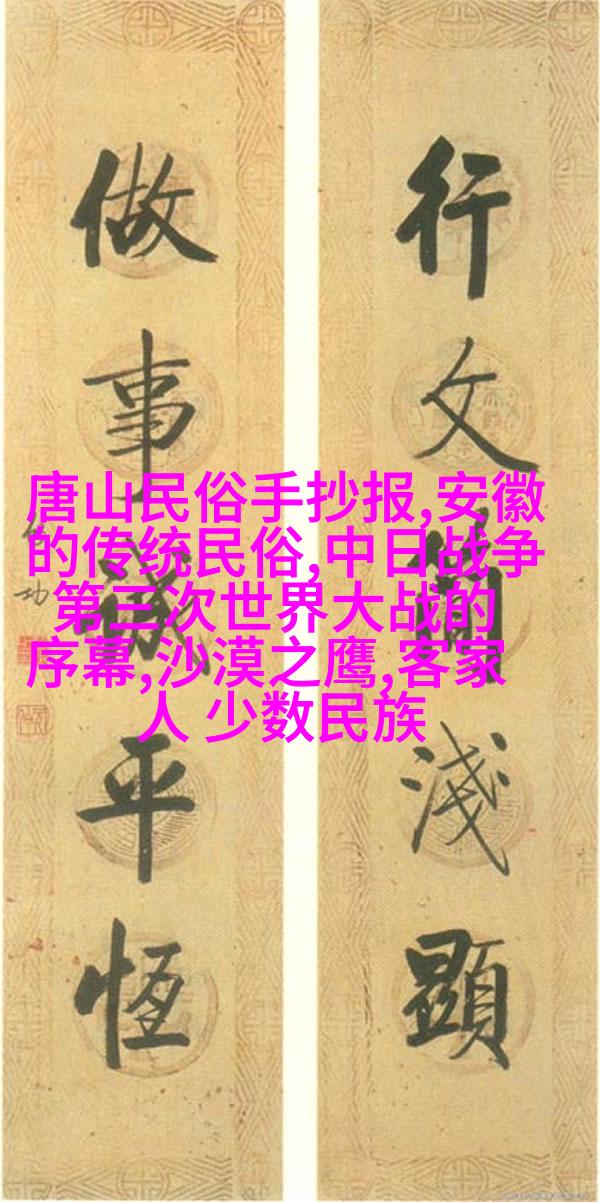 行文簡淺顯
做事誠平恆
功
唐山民俗手抄报,安徽
的传统民俗,中日战争
第三次世界大战的
序幕,沙漠之鹰,客家
人 少数民族